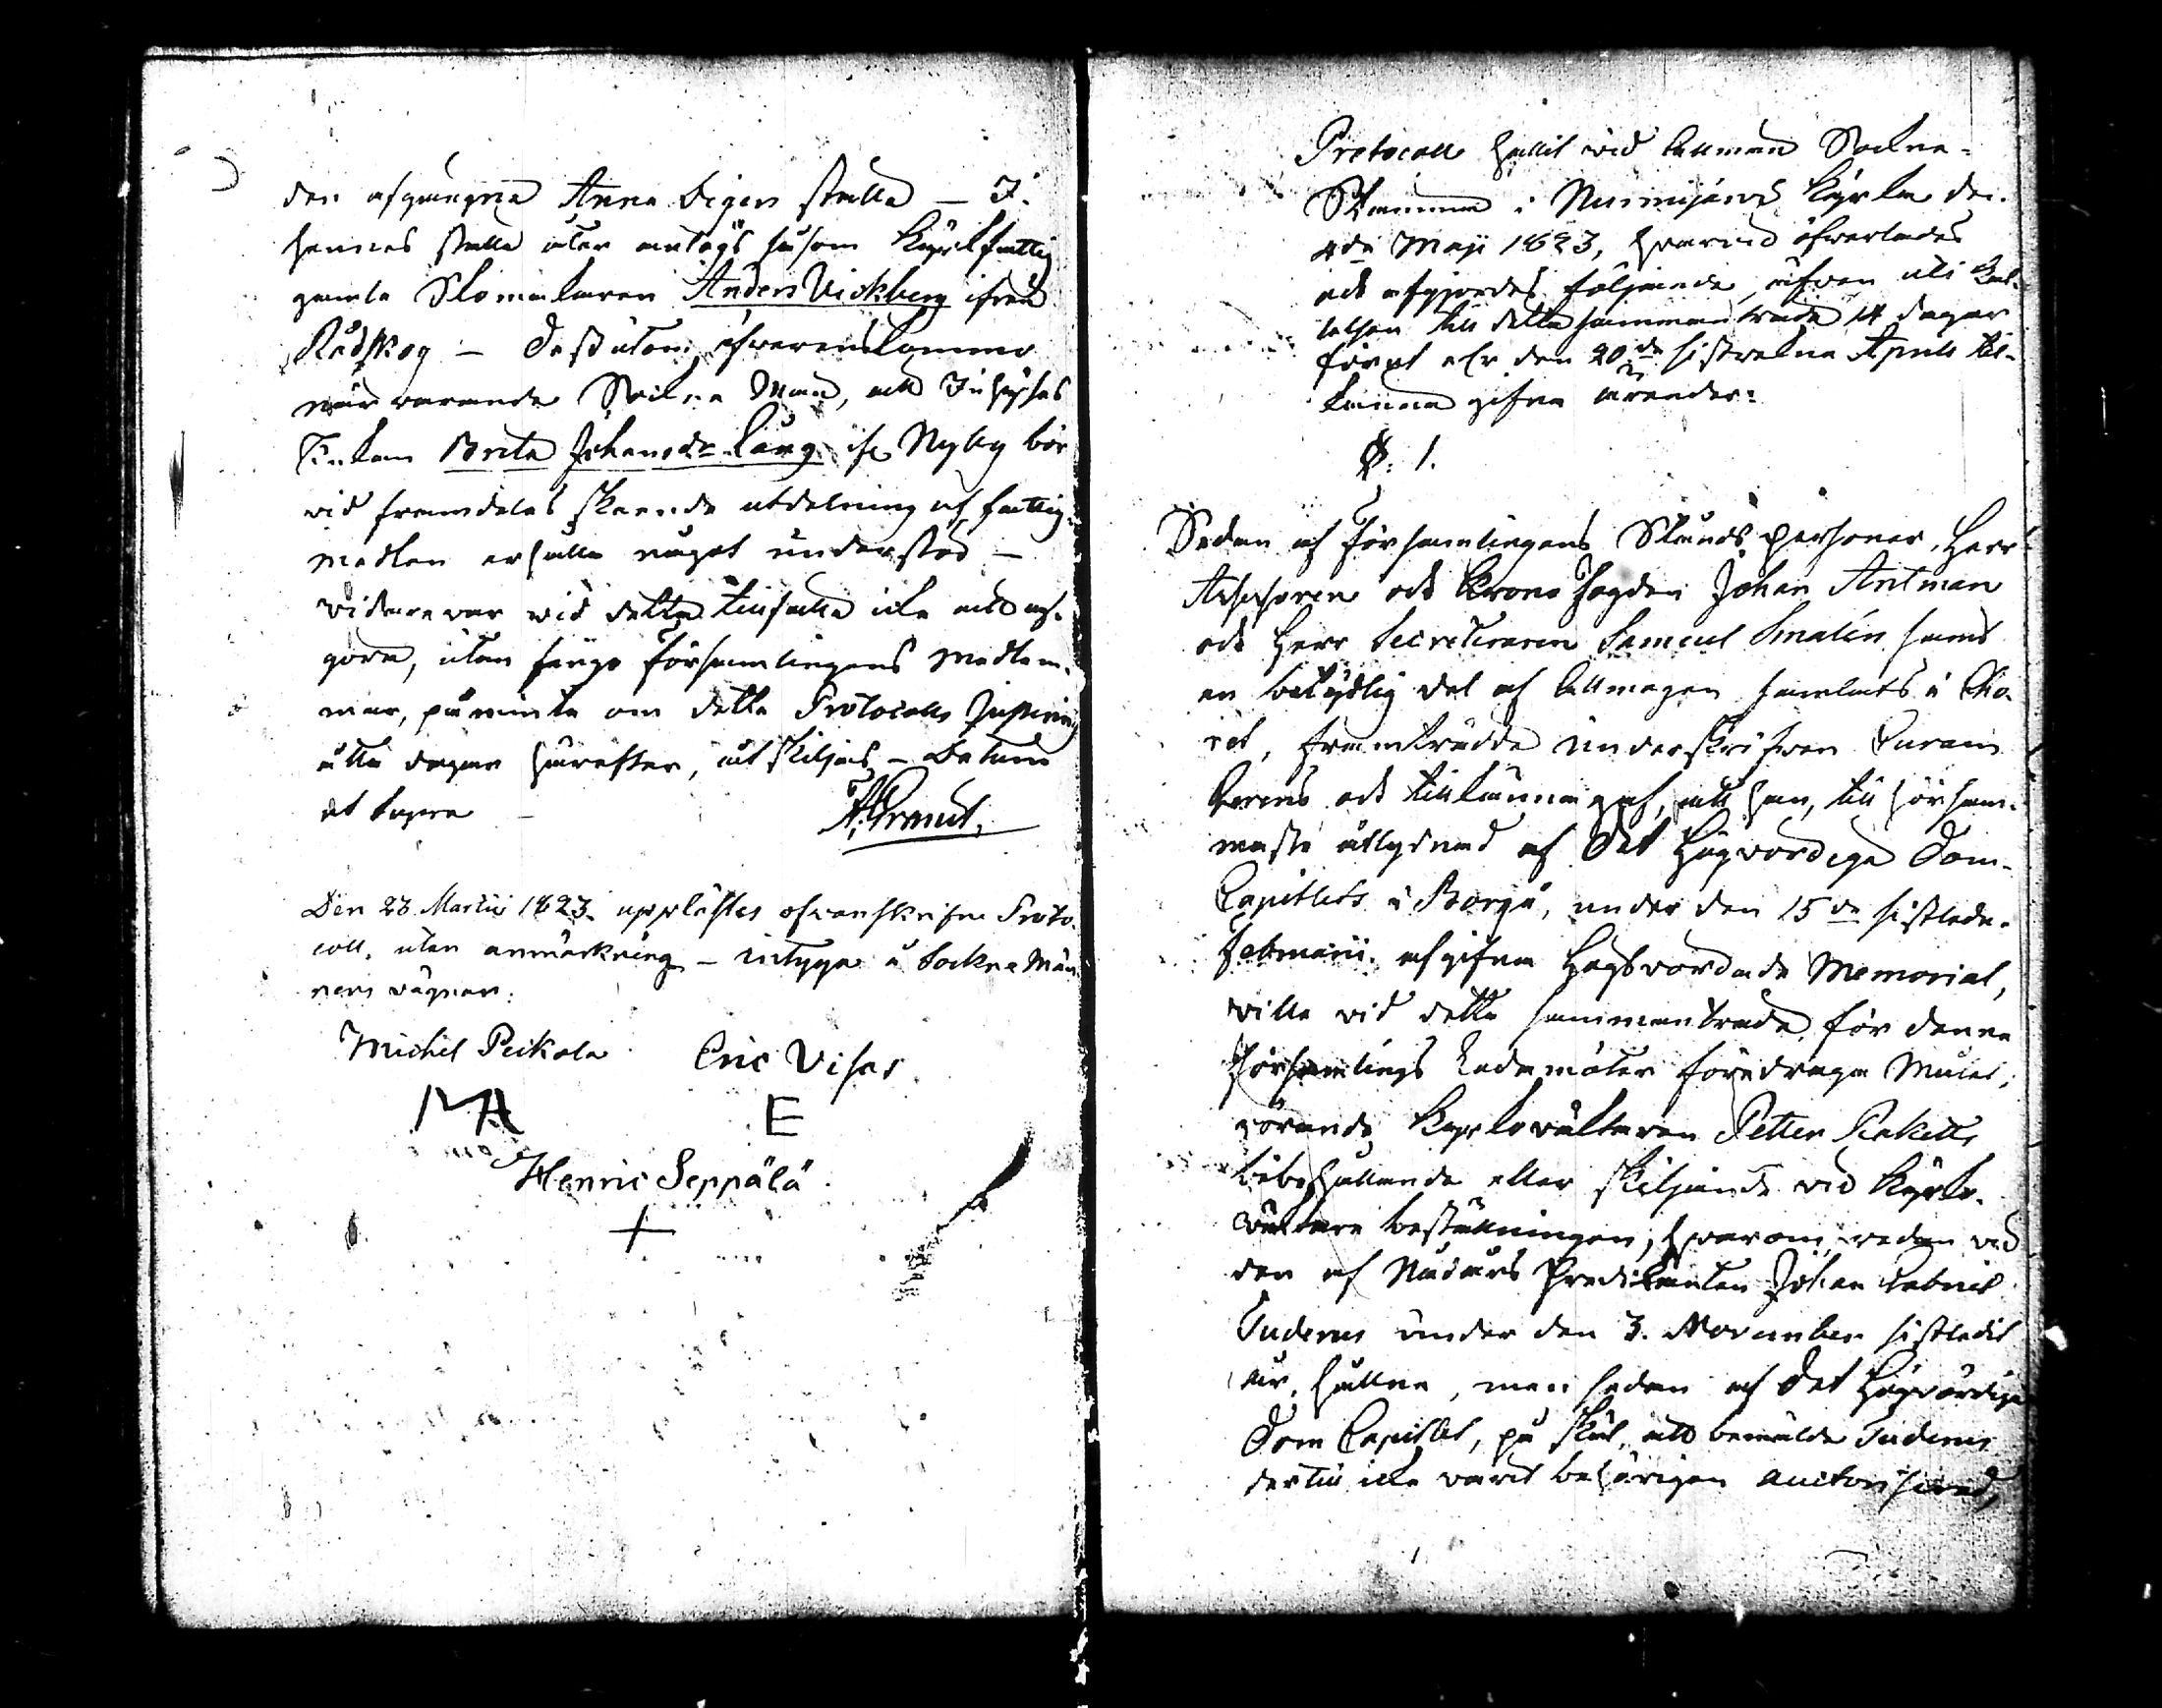 den afgångna Anna Sigers ställe — I
hennes ställe åter antogs såsom Kyrkfattig
gamla Skomakaren Anders Vickberg ifrån
Rådskog — dessutom öfverenskommo
närvarande Sockne Män, att Inhyses
Enkan Brita Johansdr Lång if. Nyby bör
vid framdeles skeende utdelning af fattig-
medlen erhålla något understöd —
vidare var vid detta tillfälle icke att af-
göra, utan fingo Församlingens medlem-
mar, påminte om detta Protocolls Justering
åtta dagar härefter, åtskiljas — Datum
ut supra
Den 23 Martii 1823 upplästes ofvanskrifne Proto-
coll, utan anmärkning — intyga å Sockne Män-
nens vägnar:
Michel Peikola Eric Visas
MA E
Henric Seppälä
+
Protocoll hållit vid allmän Sockne-
Stämma i Nurmijärvi Kyrka den
4de Maji 1823, hvarvid öfverlades
och afgjordes följande, äfven uti Kal-
lelsen till detta sammanträde 14 dagar
förut eller den 20de sistvekne Aprils till-
känna gifne ärender:
§. 1.
Sedan af Församlingens Stånds personer, Herr
Assessoren och Krono Fogden Johan Antman
och Herr Secreteraren Samuel Smalén samt
en betydlig del af Allmogen samlats i Cho-
ret, framträdde underskrifven Curam
Gerens och tillkännagaf, att han, till hörsam-
maste åtlydnad af Det Högvördiga Dom-
Capitlets i Borgå, under den 15de sistledne
Februarii afgifna Högtvördade Memorial,
ville vid detta sammanträde för denne
Församlings Ledamöter föredraga Målet,
rörande Kyrkoväktaren Petter
bibehållande eller skiljande vid Kyrko-
väktare beställningen; hvarom, redan vid
den af Nådårs Predikanten Johan Gabriel
Tuderus under den 3. November sistledit
år, hållne, men sedan af Det Högvördiga
Dom Capitlet, på skäl, att bemälde Tuderus
dertill icke varit behörigen auctoriserad,